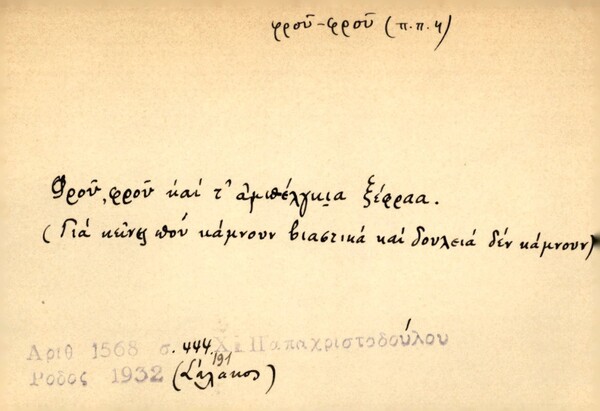 φροῦ-φροῦ (π.π.η)
Φροῦ, φροῦ καί τ' ἀμπέλγκια ξέφραα.
(Γιά κείνους πού κάμνουν βιαστικά καί δουλειά δέν κάμνουν)
Αριθ 1568 σ. 444, 191 Χ. Παπαχριστοδούλου
Ρόδος 1932 (Σάλακος)